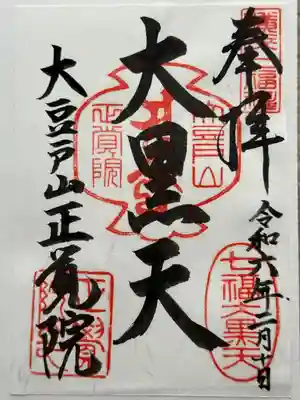 奉拝
令和六年二月十日
大黒天
大豆戸山正覚院
正覚院
七福大黒天